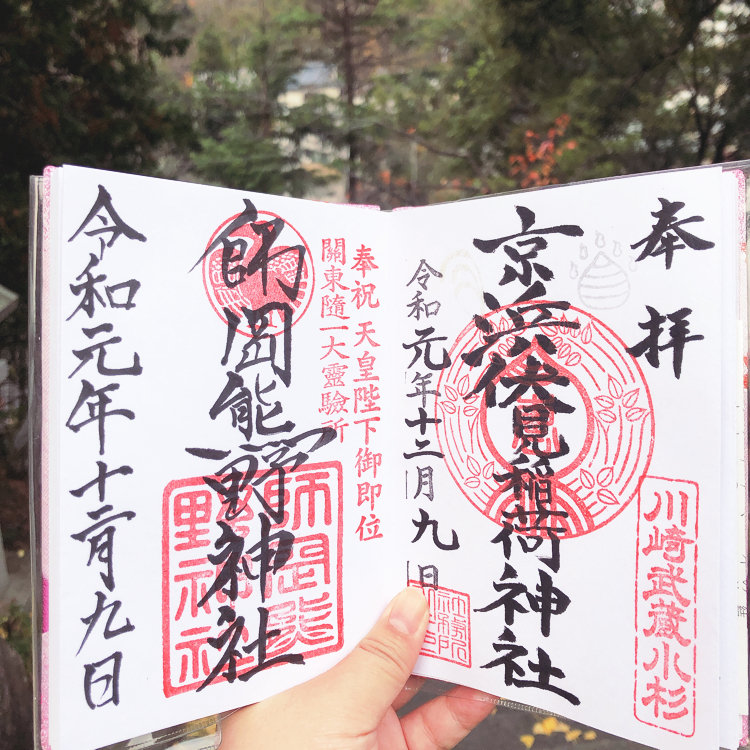 奉拝
京浜伏見稲荷神社
川崎武蔵小杉
令和元年十二月九日
奉祝 天皇陛下御即位
關東随一大靈驗所
師岡熊野神社
師岡熊野神社
令和元年十二月九日